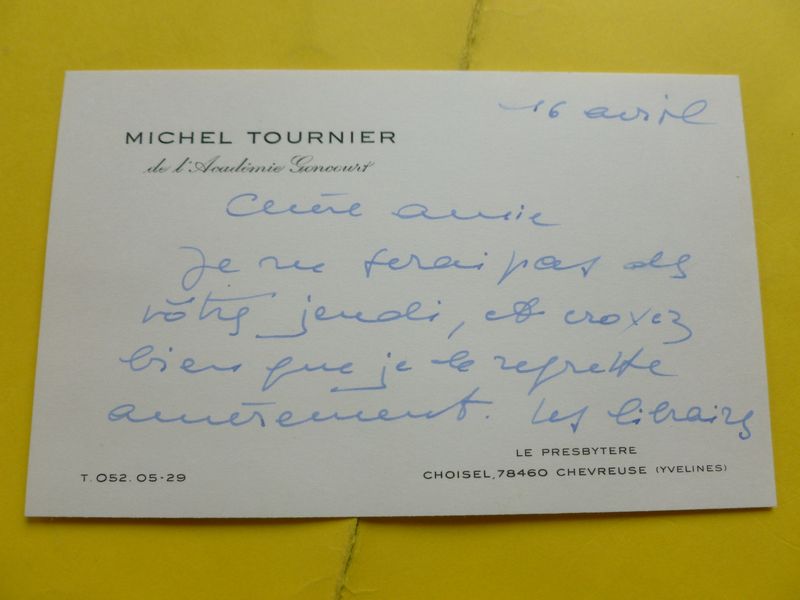 16 avril
MICHEL TOURNIER
de l'Académie Goncourt
Chère amie
Je ne serai pas des
vôtres jeudi, et croyez
bien que je le regrette
amèrement. Les libraires
LE PRESBYTERE
T. 052. 05-29
CHOISEL, 78460 CHEVREUSE (YVELINES)